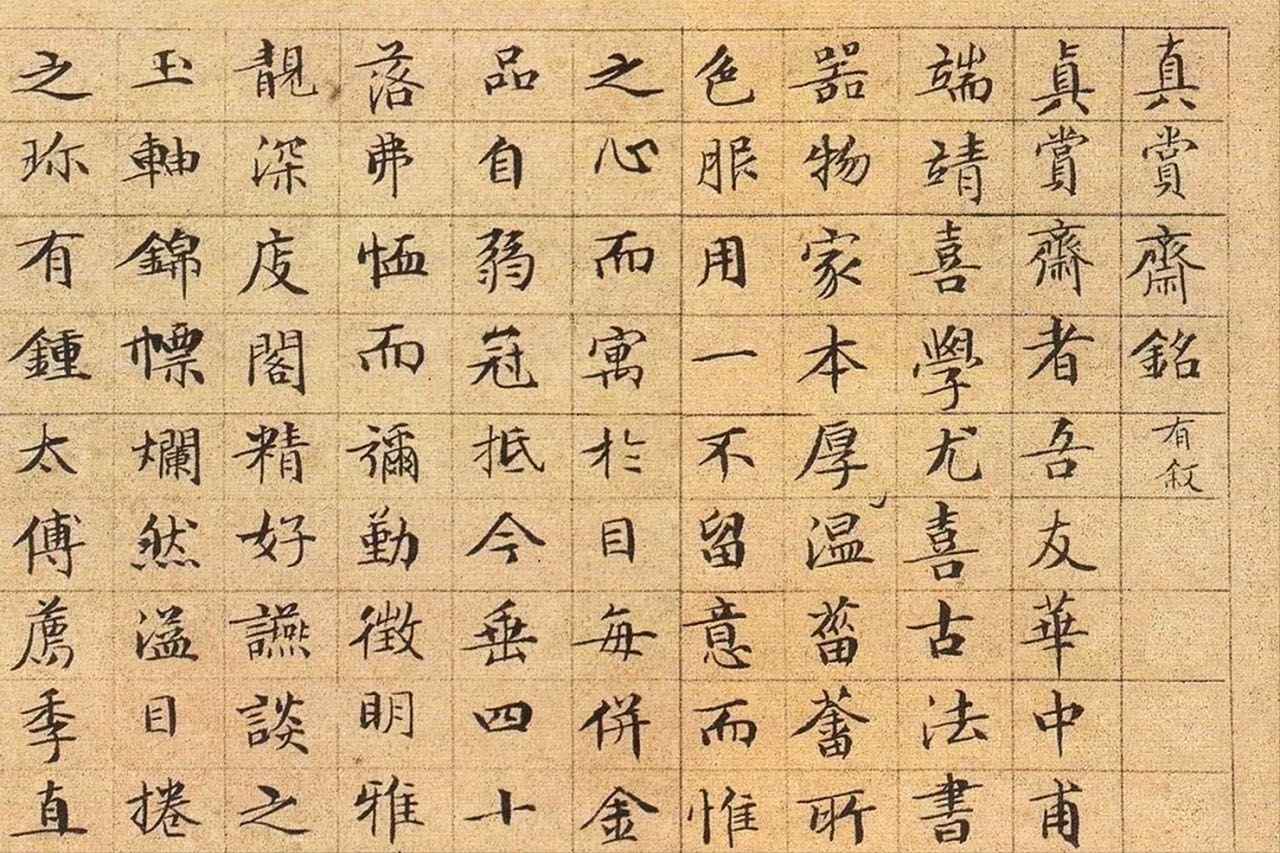 真賞齋銘有叙
真賞齋者吾友華中甫
端靖喜學尤喜古法書
器物家本厚温菑蓄所
色服用一不留意而惟
之心而寓於目每併金
品自弱冠抵今垂四十
落弗恤而彌勤徴明雅
靚深庋閣精好讌談之
玉軸錦幖爛然溢目捲
之珎有鍾太傅薦季直